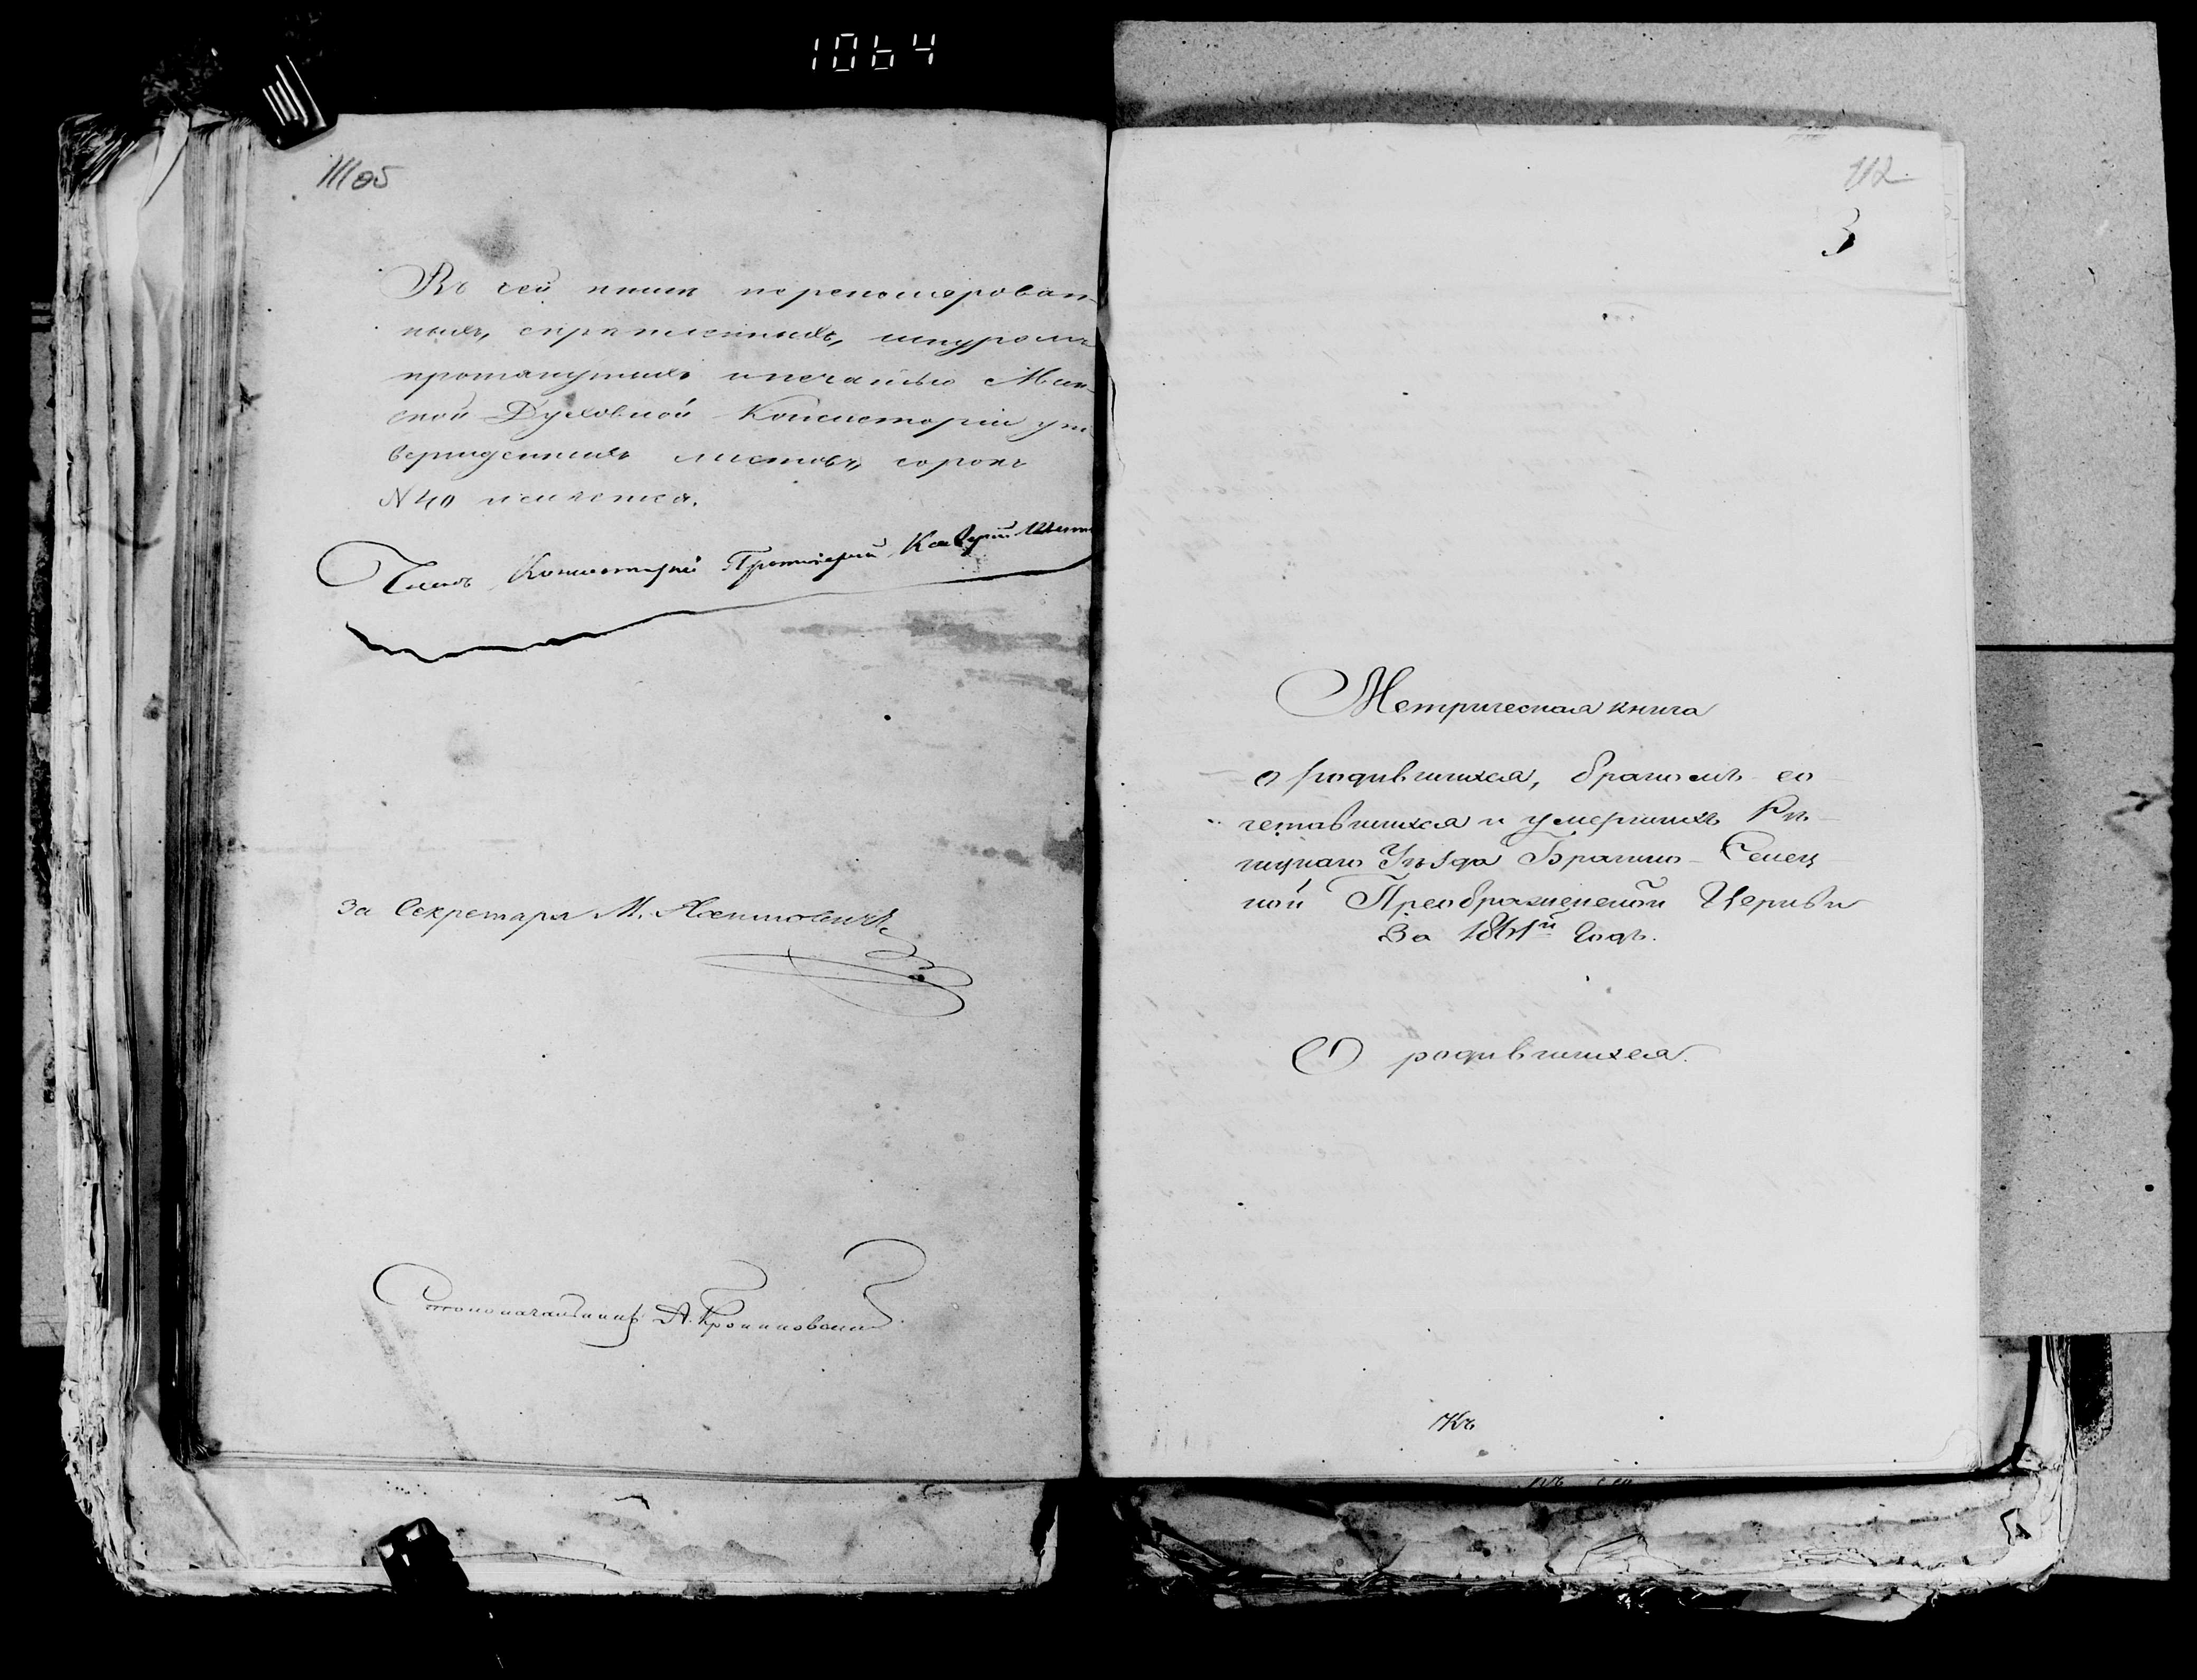 1064
111 об
Въ сей книгѣ перенумерован-
ныхъ, скрѣпленныхъ, шнуромъ
протянутыхъ и печатью Мин-
ской Духовной Консисторіи ут-
вержденныхъ листовъ, сорокъ
N 40 имѣется.
Членъ Консисторіи Протоіерей
За Секретаря М.
Столоначальникъ А.
112
3
Метрическая книга
о родившихся, бракомъ со-
четавшихся и умершихъ Рѣ-
чицкаго Уѣзда Брагино-Селец
кой Преображенской Церкви
За 1861й Годъ.
О родившихся.